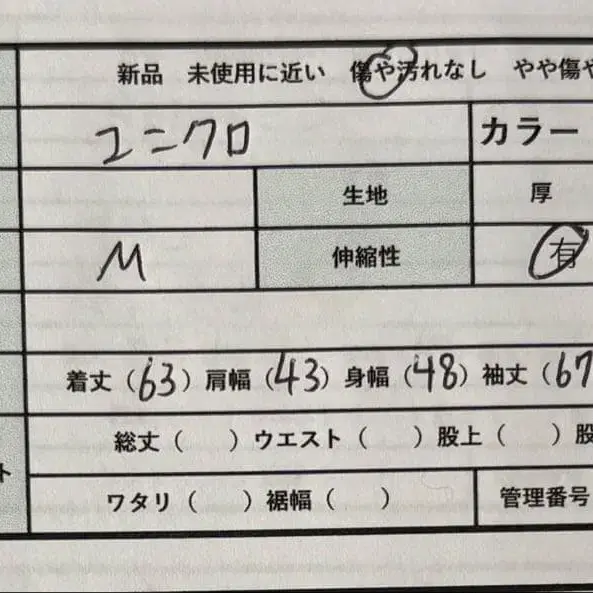 新品 未使用に近い 傷や汚れなし やや傷や
ユニクロ カラー
生地 厚
M 伸縮性 有
着丈(63)肩幅(43)身幅(48)袖丈(67
総丈( )ウエスト( )股上( )股
ト
ワタリ( )裾幅( ) 管理番号